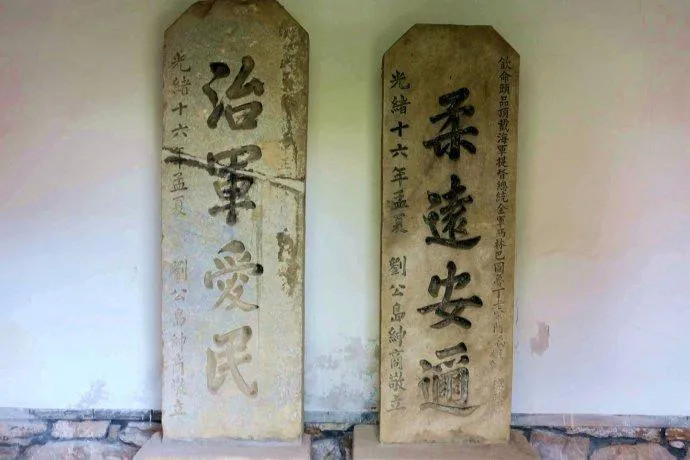 治軍愛民
光緒十六年孟夏 劉公島紳商敬立
欽命頭品頂戴海軍提督總統全軍西林巴圖魯丁
柔遠安邇
光緒十六年孟夏 劉公島紳商敬立